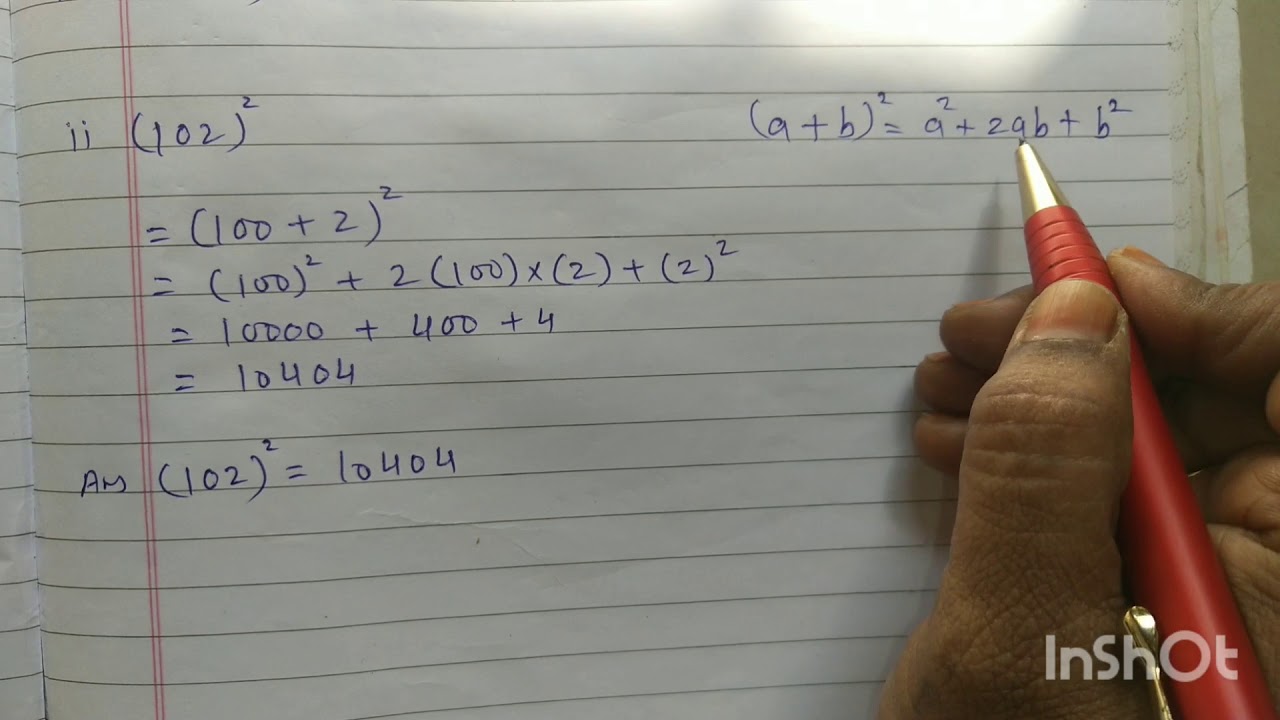 ii (102)² (a+b)² = a² + 2ab + b²
= (100 + 2)²
= (100)² + 2 (100) × (2) + (2)²
= 10000 + 400 + 4
= 10404
Ans (102)² = 10404
InShOt